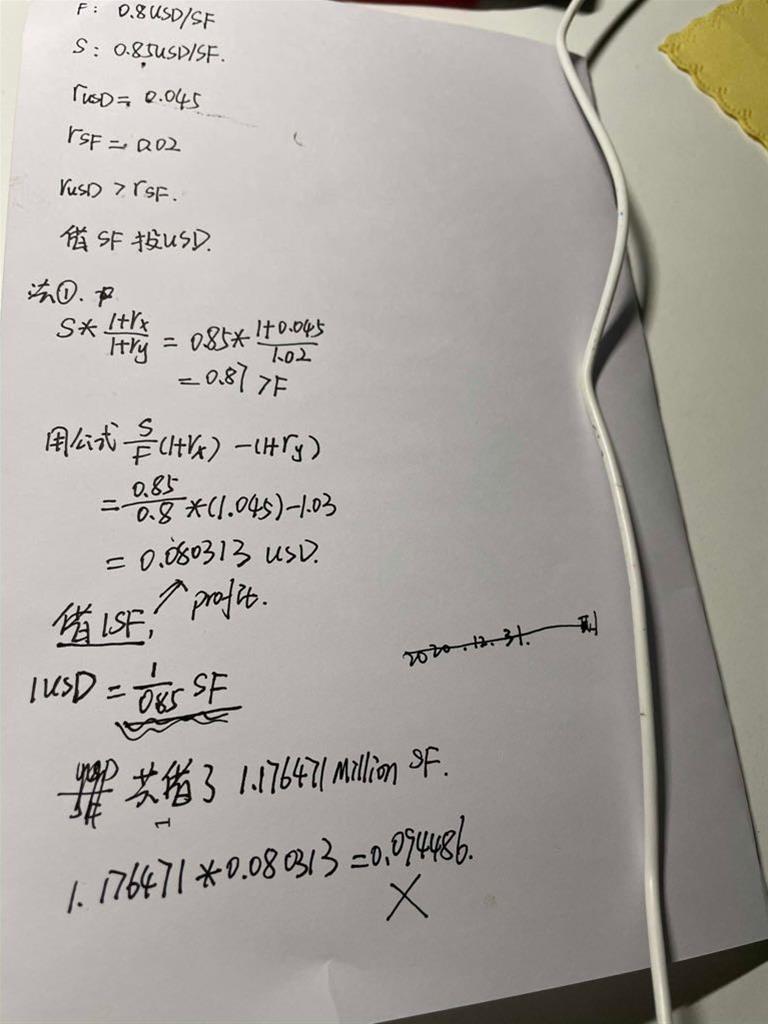 F: 0.8USD/SF
S: 0.85USD/SF.
rUSD = 0.045
rSF = 0.02
rUSD > rSF.
借 SF 投USD.
法①.
S* (1+rx)/(1+ry) = 0.85* (1+0.045)/1.02
= 0.87 >F
用公式 S/F (1+rx) - (1+ry)
= 0.85/0.8 *(1.045)-1.03
= 0.080313 USD.
profit.
借1SF,
2020.12.31.
1USD = 1/0.85 SF
共借了 1.176471 Million SF.
1.176471 *0.080313 =0.094486.